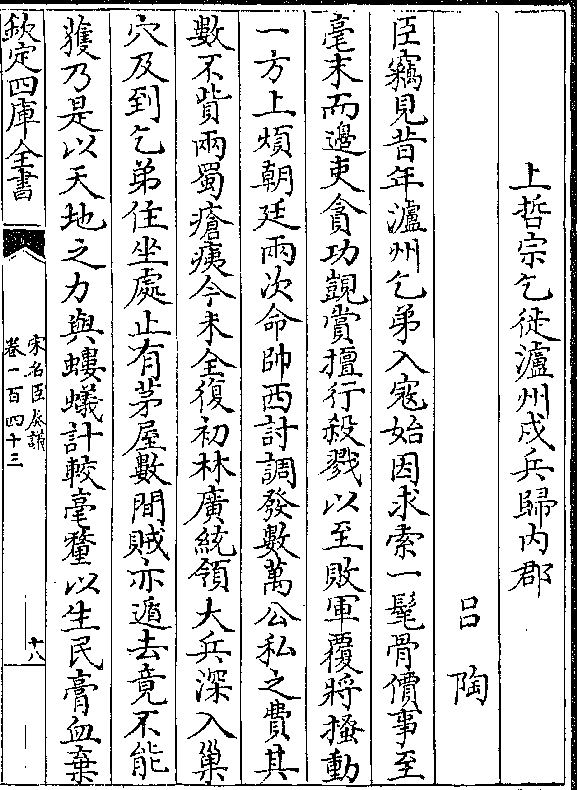 上哲宗乞徙瀘州戍兵歸内郡
吕陶
臣竊見昔年瀘州乞弟入寇始因求索一髦骨價事至
毫末而邊吏貪功覬賞擅行殺戮以至敗軍覆將搔動
一方上煩朝廷兩次命帥西討調發數萬公私之費其
數不貲兩蜀瘡痍今未全復初林廣統領大兵深入巢
穴及到乞弟住坐處止有茅屋數間賊亦遁去竟不能
獲乃是以天地之力與螻蟻計較毫釐以生民膏血棄
欽定四庫全書
宋名臣奏議
卷一百四十三
十八